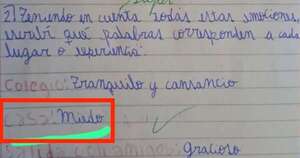 2) Teniendo en cuenta todas estas emociones
escribí qué palabras corresponden a cada
lugar o experiencia:
Colegio: Tranquilo y cansancio
Casa: Miedo
Salida con amigos: Gracioso